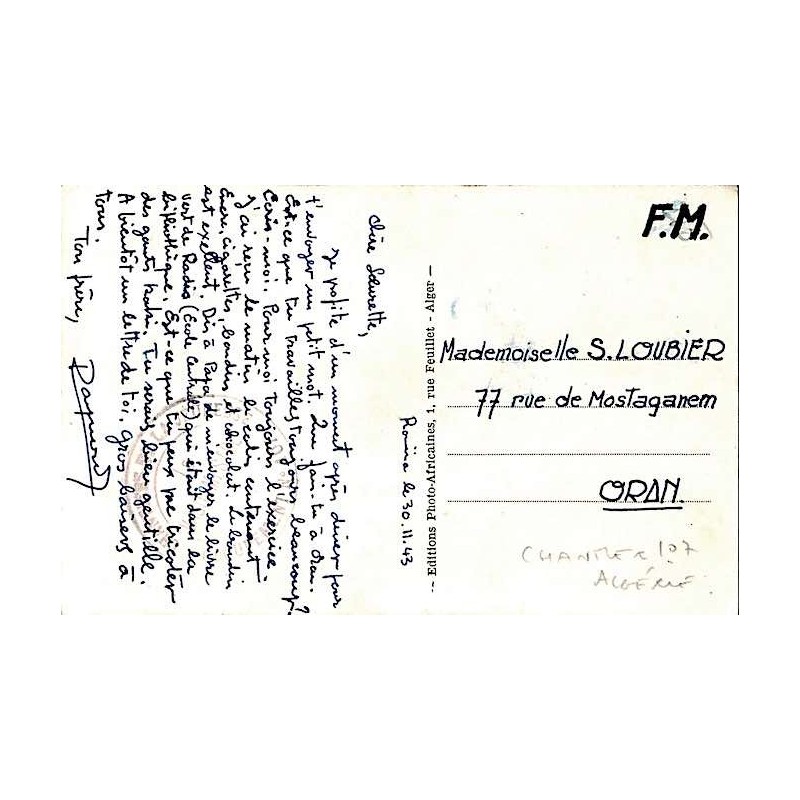 Rouïba le 30.11.43
Chère Soeurette,
Je profite d'un moment après dîner pour
t'envoyer un petit mot. Que fais-tu à Oran.
Est-ce que tu travailles toujours beaucoup?
Ecris-moi. Pour moi toujours l'exercice.
J'ai reçu ce matin le colis contenant
Encre, cigarettes, boudin et chocolat. Le boudin
est excellent. Dis à Papa de m'envoyer le livre
vert de Radio (Ecole Centrale) qui était dans la
bibliothèque. Est-ce que tu peux me tricoter
des gants kaki. Tu serais bien gentille.
A bientôt un lettre de toi. Gros baisers à
tous.
Ton frère,
Raymond
-- Editions Photo-Africaines, 1, rue Feuillet - Alger --
F.M.
Mademoiselle S. LOUBIER
77 rue de Mostaganem
ORAN.
CHANTIER 107
ALGÉRIE